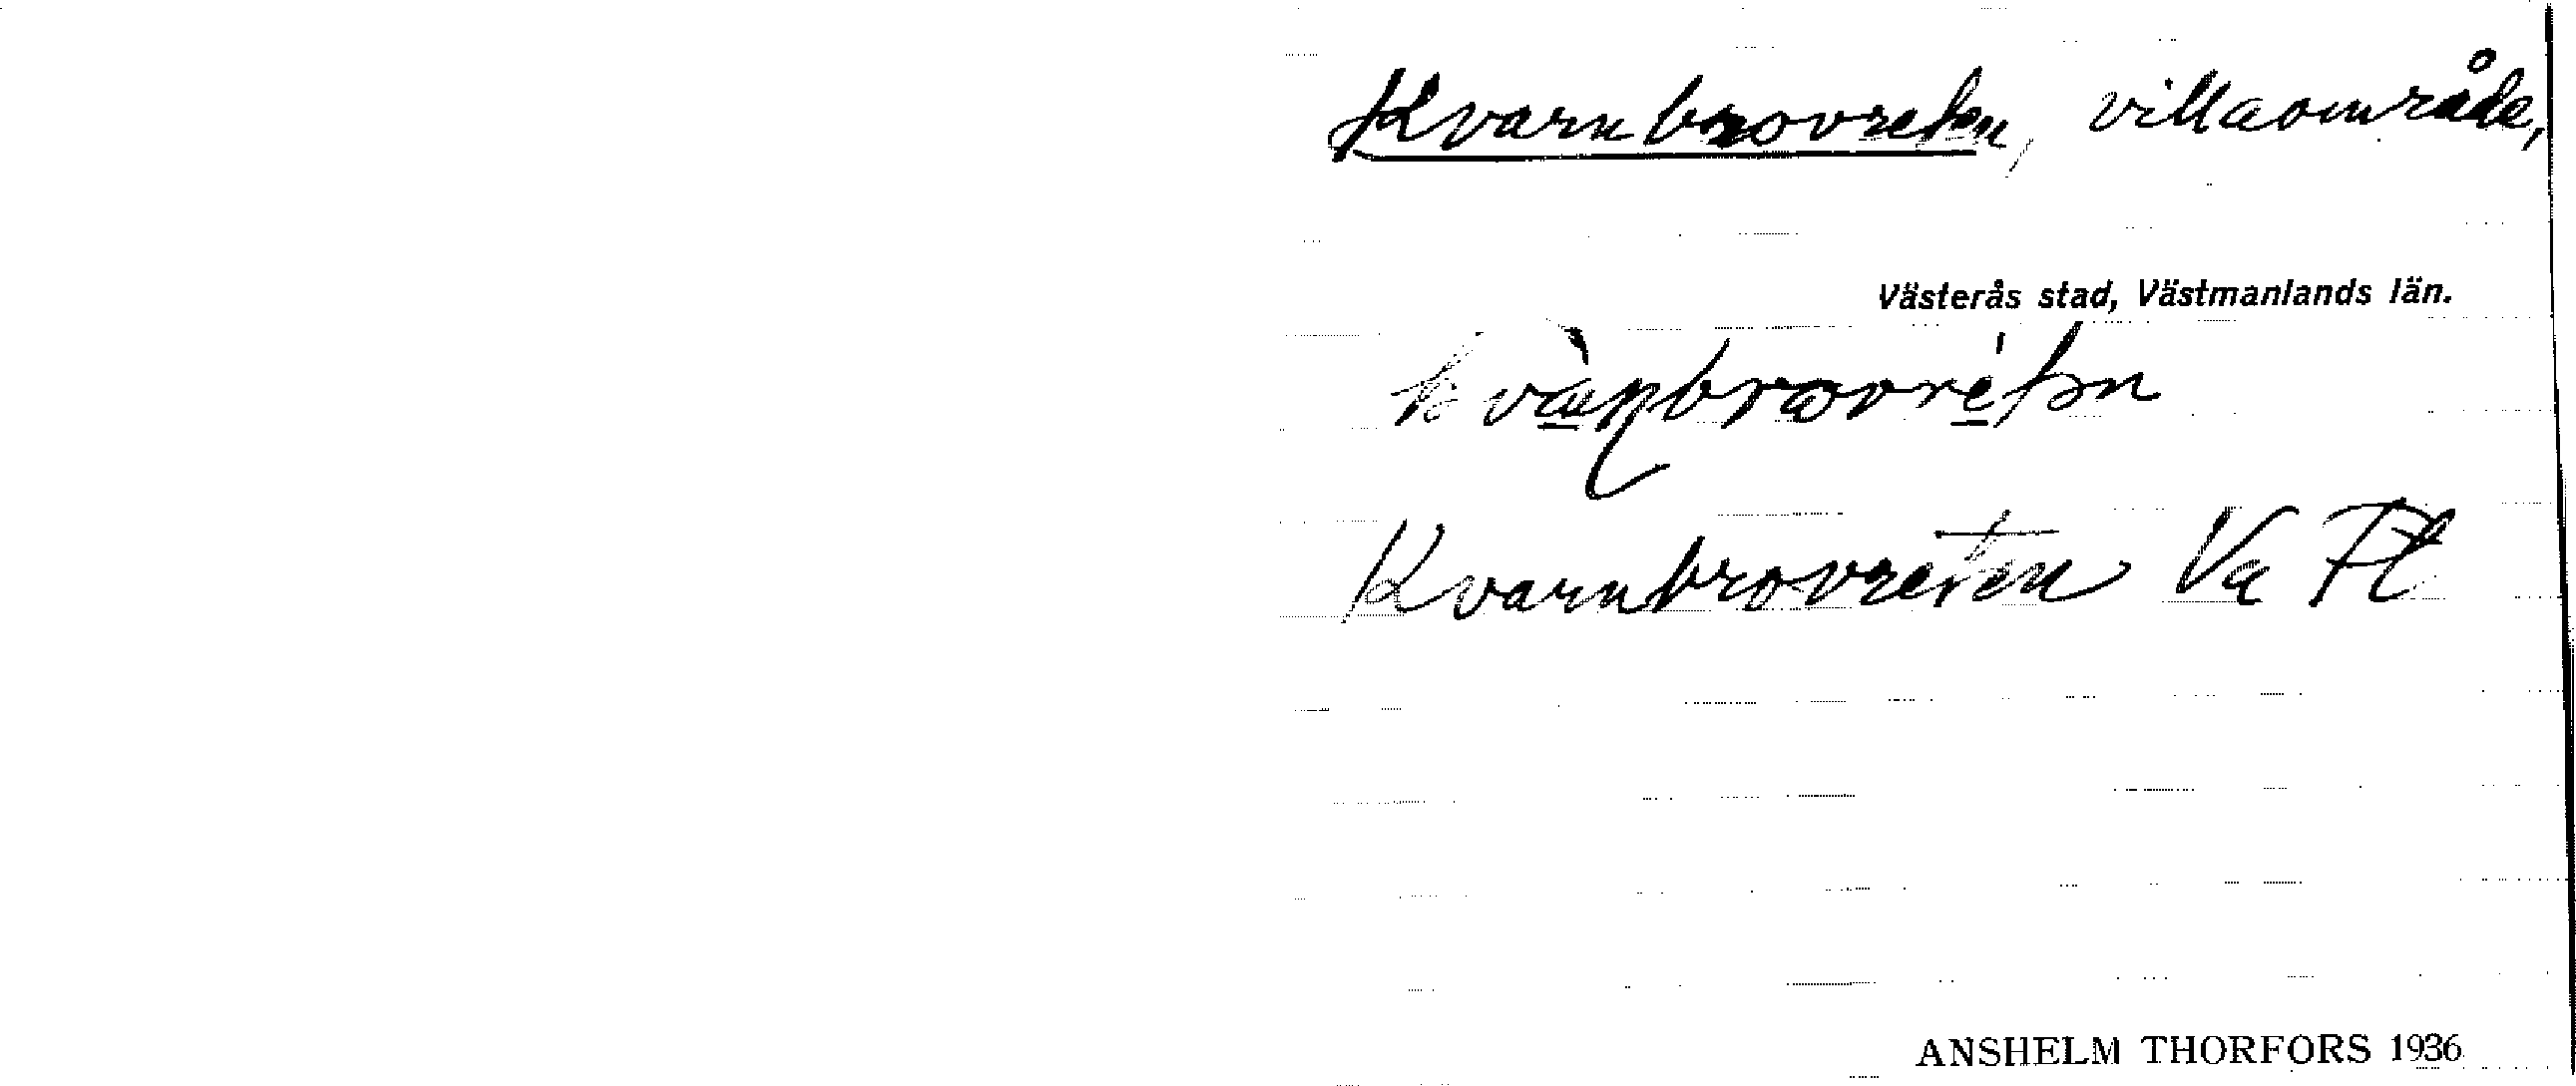 Kvarnbrovreten, villaområde,
Västerås stad, Västmanlands län.
Kvarnbrovreten Va Ft
ANSHELM THORFORS 1936